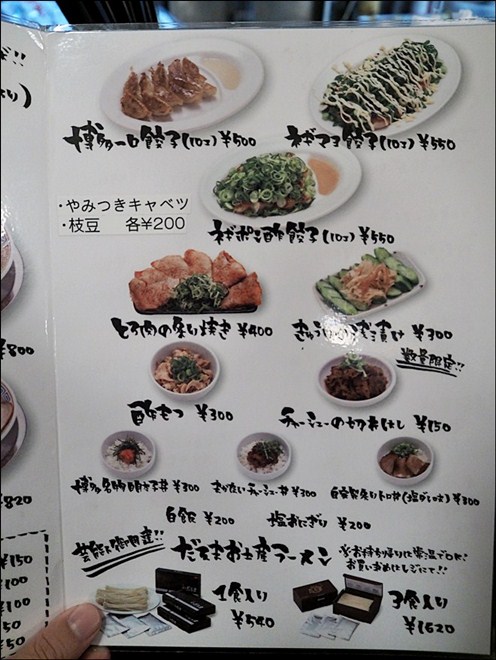 博多一口餃子(10コ) ¥500
ネギマヨ餃子(10コ) ¥550
・やみつきキャベツ
・枝豆 各¥200
ネギポン酢餃子(10コ) ¥550
とろ肉の炙り焼き ¥400
きゅうりの浅漬け ¥300
数量限定!!
酢もつ ¥300
チャーシューの切れはし ¥150
博多名物明太子丼 ¥300
まかないチャーシュー丼 ¥300
自家製炙りトロ丼(塩ダレ味) ¥300
白飯 ¥200
塩おにぎり ¥200
芸能人御用達!!
だるまお土産ラーメン
※お持ち帰りは常温でOK!
お買い求めはレジにて!!
1食入り
¥540
3食入り
¥1620
¥800
¥820
¥150
¥100
¥100